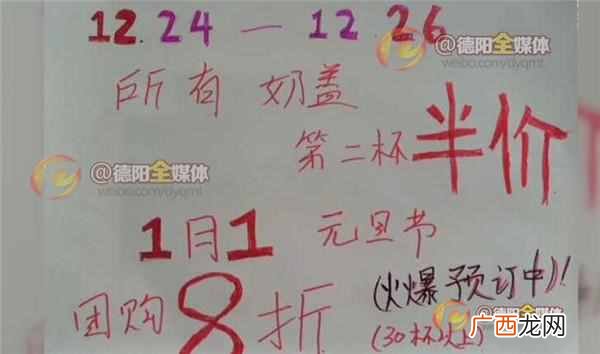 12.24 — 12.26
@德阳全媒体
weibo.com/dyqmt
所有 奶盖
第二杯 半价
@德阳全媒体
weibo.com/dyqmt
1月1 元旦节
团购 8 折 (火爆预订中)!
(30杯以上)
@德阳全媒体
广西龙网